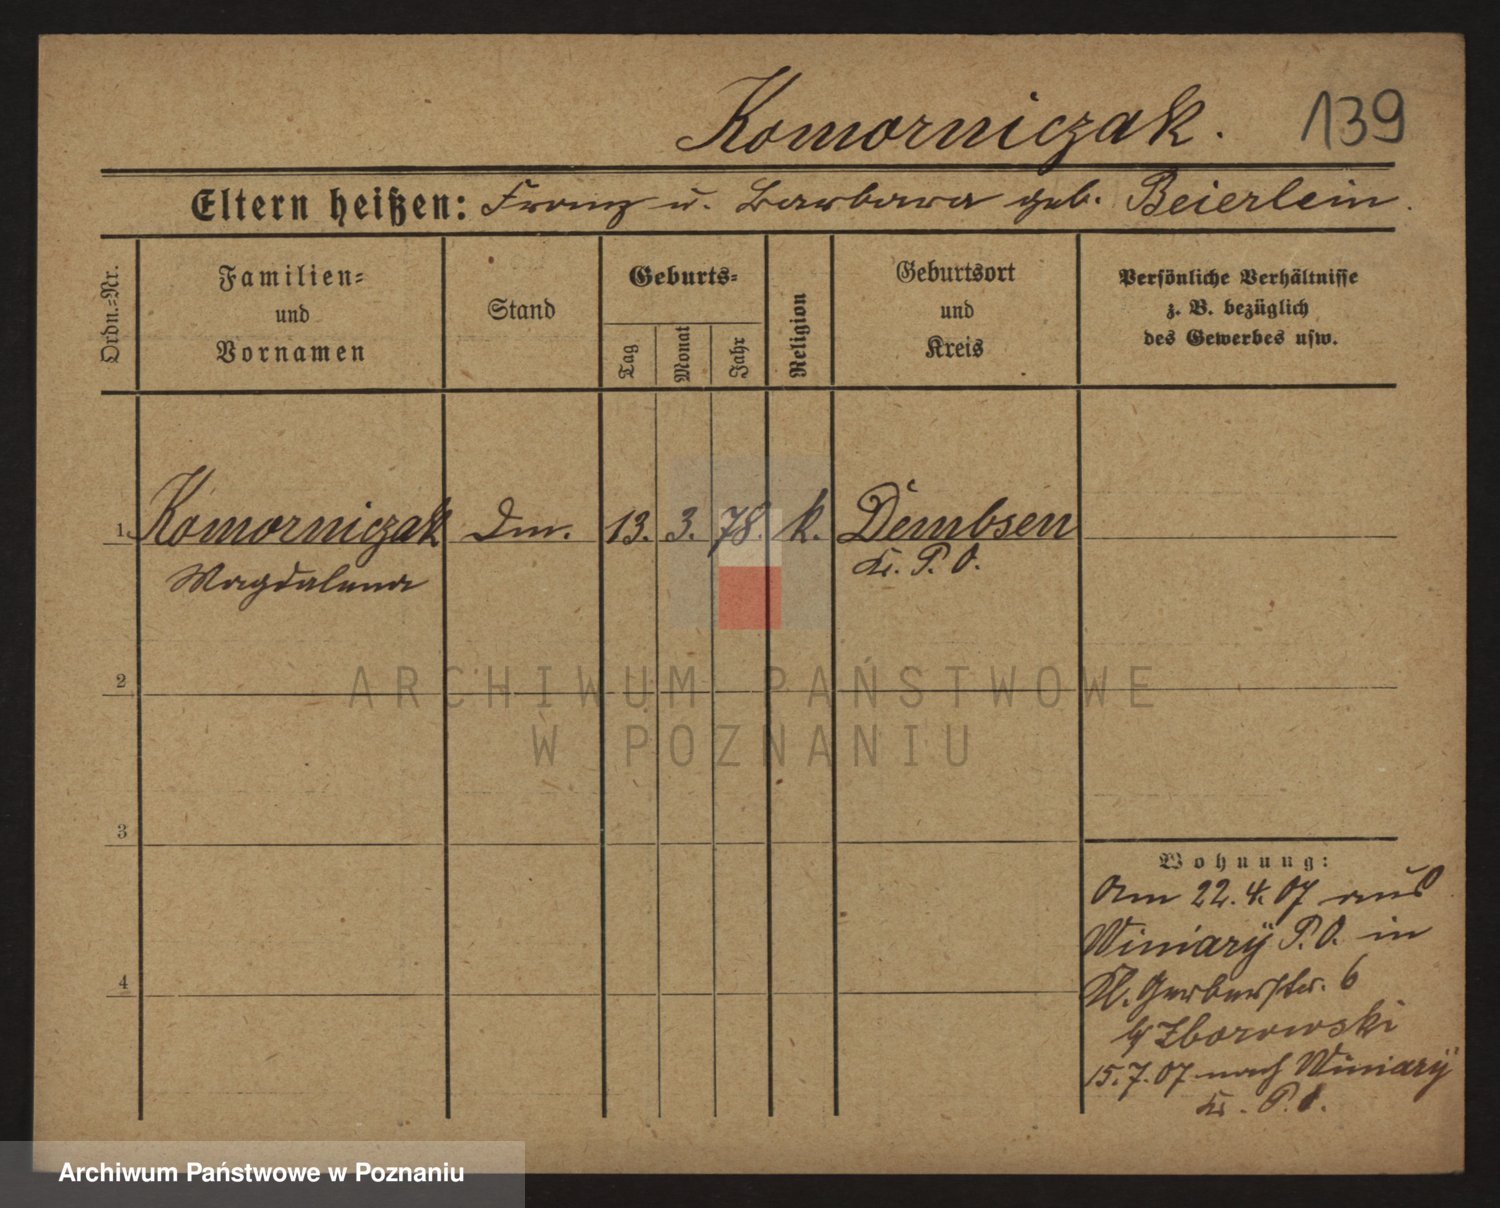 Komorniczak. 139
Eltern heißen: Franz u. Barbara geb. Beierlein.
Ordn.=Nr.
Familien=
und
Vornamen
Stand
Geburts=
Tag
Monat
Jahr
Religion
Geburtsort
und
Kreis
Persönliche Verhältnisse
z. B. bezüglich
des Gewerbes usw.
1. Komorniczak Dm. 13. 3. 78. k. Dembsen
Magdalena Kr. P. O.
2
3
4
Wohnung:
Am 22.4.07 aus
Winiary P. O. in
Kl. Gerberstr. 6
b/ Zborowski
15.7.07 nach Winiary
Kr. P. O.
ARCHIWUM PAŃSTWOWE
W POZNANIU
Archiwum Państwowe w Poznaniu